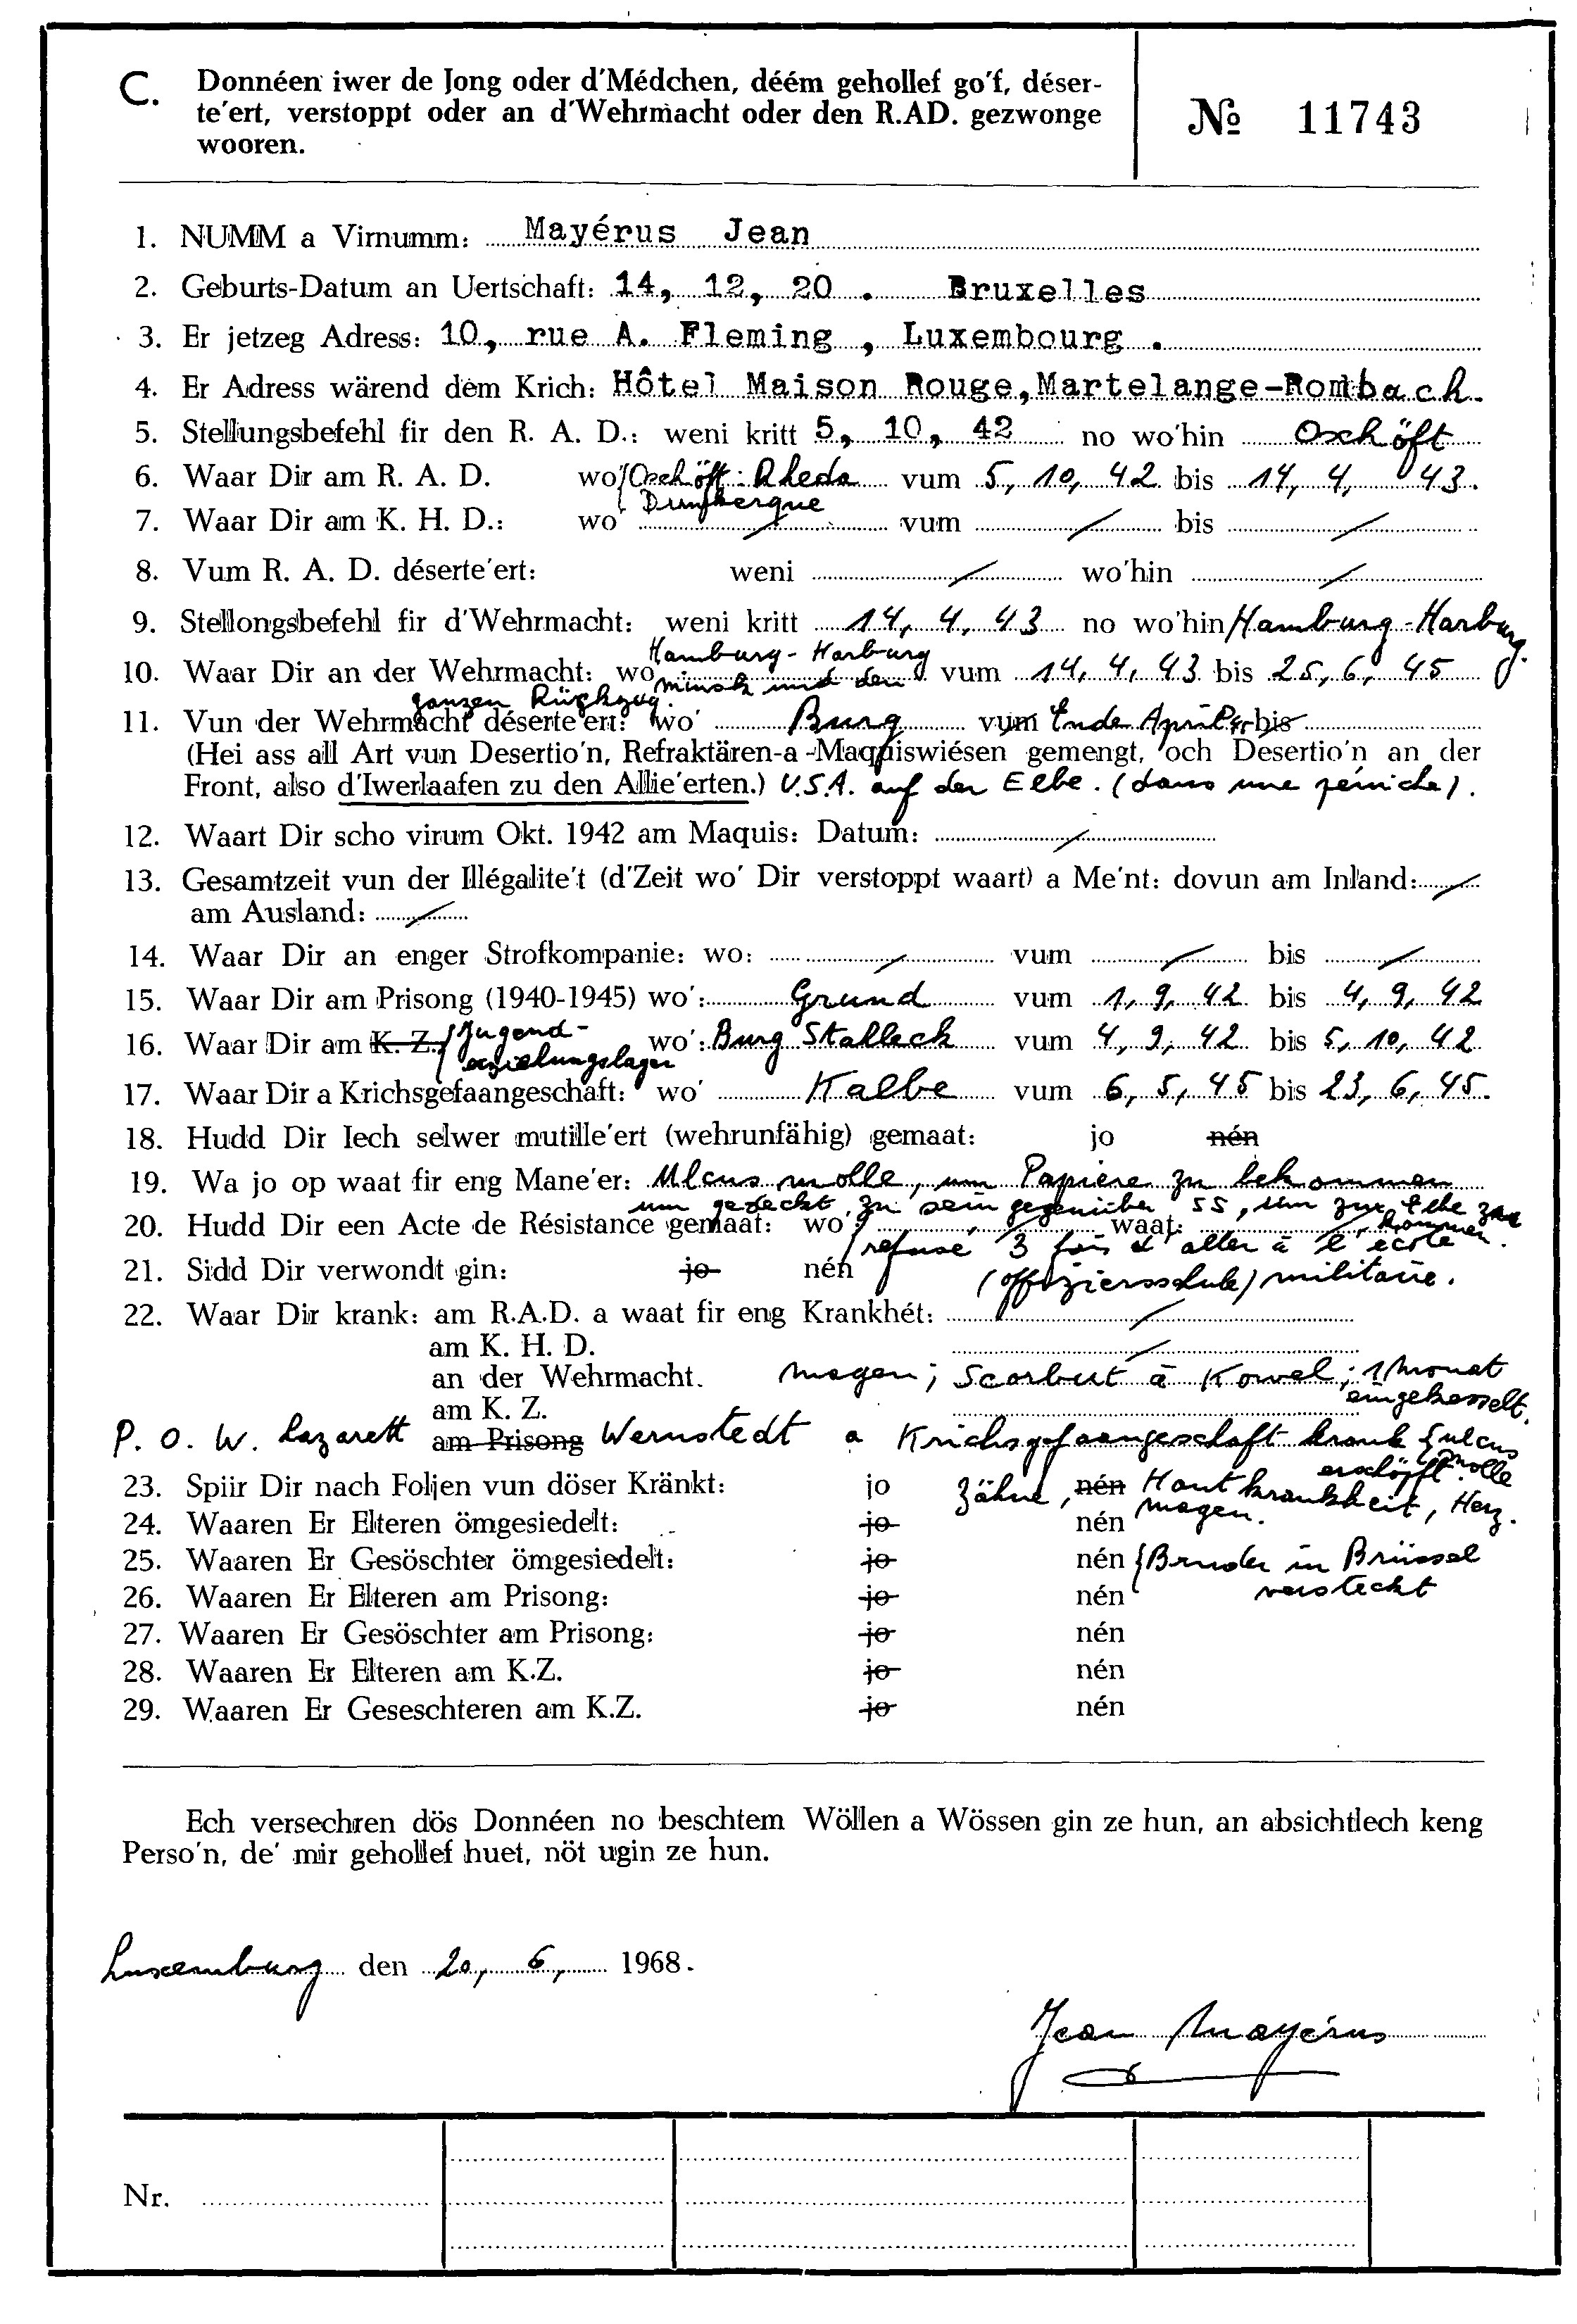 C. Donnéen iwer de Jong oder d'Médchen, déém gehollef go'f, déser-
te'ert, verstoppt oder an d'Wehrmacht oder den R.AD. gezwonge
wooren.
№ 11743
1. NUMM a Virnumm: Mayérus Jean
2. Geburts-Datum an Uertschaft: 14, 12, 20 . Bruxelles
3. Er jetzeg Adress: 10, rue A. Fleming , Luxembourg .
4. Er Adress wärend dem Krich: Hôtel Maison Rouge, Martelange-Rombach.
5. Stellungsbefehl fir den R. A. D.: weni kritt 5, 10, 42 no wo'hin Oxhöft
6. Waar Dir am R. A. D. wo' Oxhöft: Rheda vum 5, 10, 42 bis 14, 4, 43.
Dunkerque
7. Waar Dir am K. H. D.: wo' / vum / bis /
8. Vum R. A. D. déserte'ert: weni / wo'hin /
9. Stellongsbefehl fir d'Wehrmacht: weni kritt 14, 4, 43 no wo'hin Hamburg-Harburg.
Hamburg-Harburg
10. Waar Dir an der Wehrmacht: wo minsk und den vum 14, 4, 43 bis 25, 6, 45
ganzen Rückzug.
11. Vun der Wehrmacht déserte'ert: wo' Burg vum Ende April 45 bis
(Hei ass all Art vun Desertio'n, Refraktären-a -Maquiswiésen gemengt, och Desertio'n an der
Front, also d'Iwerlaafen zu den Allie'erten.) U.S.A. auf der Elbe. (dans une péniche).
12. Waart Dir scho virum Okt. 1942 am Maquis: Datum: /
13. Gesamtzeit vun der Illégalite't (d'Zeit wo' Dir verstoppt waart) a Me'nt: dovun am Inland: /
am Ausland: /
14. Waar Dir an enger Strofkompanie: wo: / vum / bis /
15. Waar Dir am Prisong (1940-1945) wo': Grund vum 1, 9, 42 bis 4, 9, 42
16. Waar Dir am K. Z. Jugend- wo': Burg Stalleck vum 4, 9, 42 bis 5, 10, 42
erziehungslager
17. Waar Dir a Krichsgefaangeschaft: wo' Kalbe vum 6, 5, 45 bis 23, 6, 45.
18. Hudd Dir Iech selwer mutille'ert (wehrunfähig) gemaat: jo nén
19. Wa jo op waat fir eng Mane'er: Ulcus molle, um Papiere zu bekommen
um gedeckt zu sein gegenüber SS, um zur Elbe zu kommen.
20. Hudd Dir een Acte de Résistance gemaat: wo' / waat: /
refusé 3 fois d'aller à l'école
21. Sidd Dir verwondt gin: jo nén (offiziersschule) militaire.
22. Waar Dir krank: am R.A.D. a waat fir eng Krankhét: /
am K. H. D. /
an der Wehrmacht. Magen; Scorbut à Kowel; 1 Monat
eingekesselt.
am K. Z.
P. O. W. Lazarett am Prisong Wernstedt a Krichsgefaangeschaft krank ulcus molle
erschöpft
23. Spiir Dir nach Foljen vun döser Kränkt: jo Zähne, nén Hautkrankheit, Herz.
Magen.
24. Waaren Er Elteren ömgesiedelt: jo nén
25. Waaren Er Gesöschter ömgesiedelt: jo nén Bruder in Brüssel
versteckt
26. Waaren Er Elteren am Prisong: jo nén
27. Waaren Er Gesöschter am Prisong: jo nén
28. Waaren Er Elteren am K.Z. jo nén
29. Waaren Er Geseschteren am K.Z. jo nén
Ech versechren dös Donnéen no beschtem Wöllen a Wössen gin ze hun, an absichtlech keng
Perso'n, de' mir gehollef huet, nöt ugin ze hun.
Luxemburg den 20, 6, 1968.
Jean Mayérus
Nr.